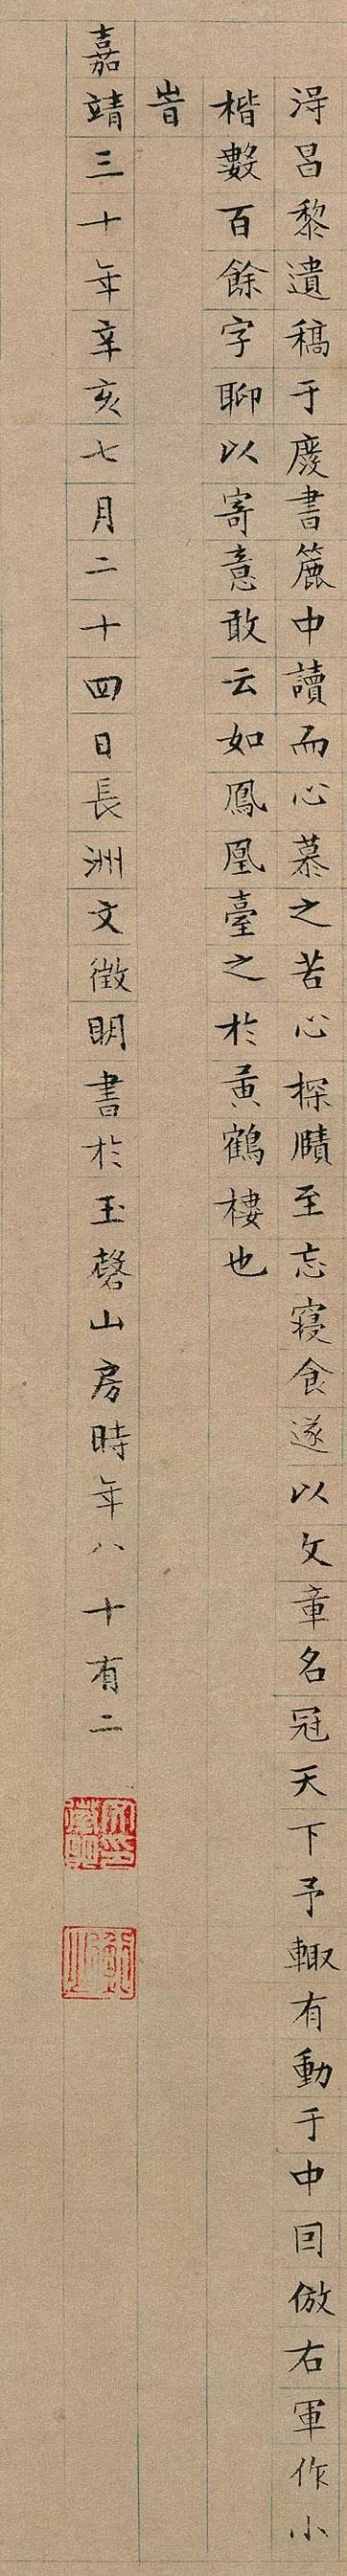 淂昌黎遺稿于廢書簏中讀而心慕之苦心探賾至忘寢食遂以文章名冠天下予輙有動于中囙倣右軍作小
楷數百餘字聊以寄意敢云如鳳凰臺之於黃鶴樓也
旹
嘉靖三十年辛亥七月二十四日長洲文徵明書於玉磬山房時年八十有二